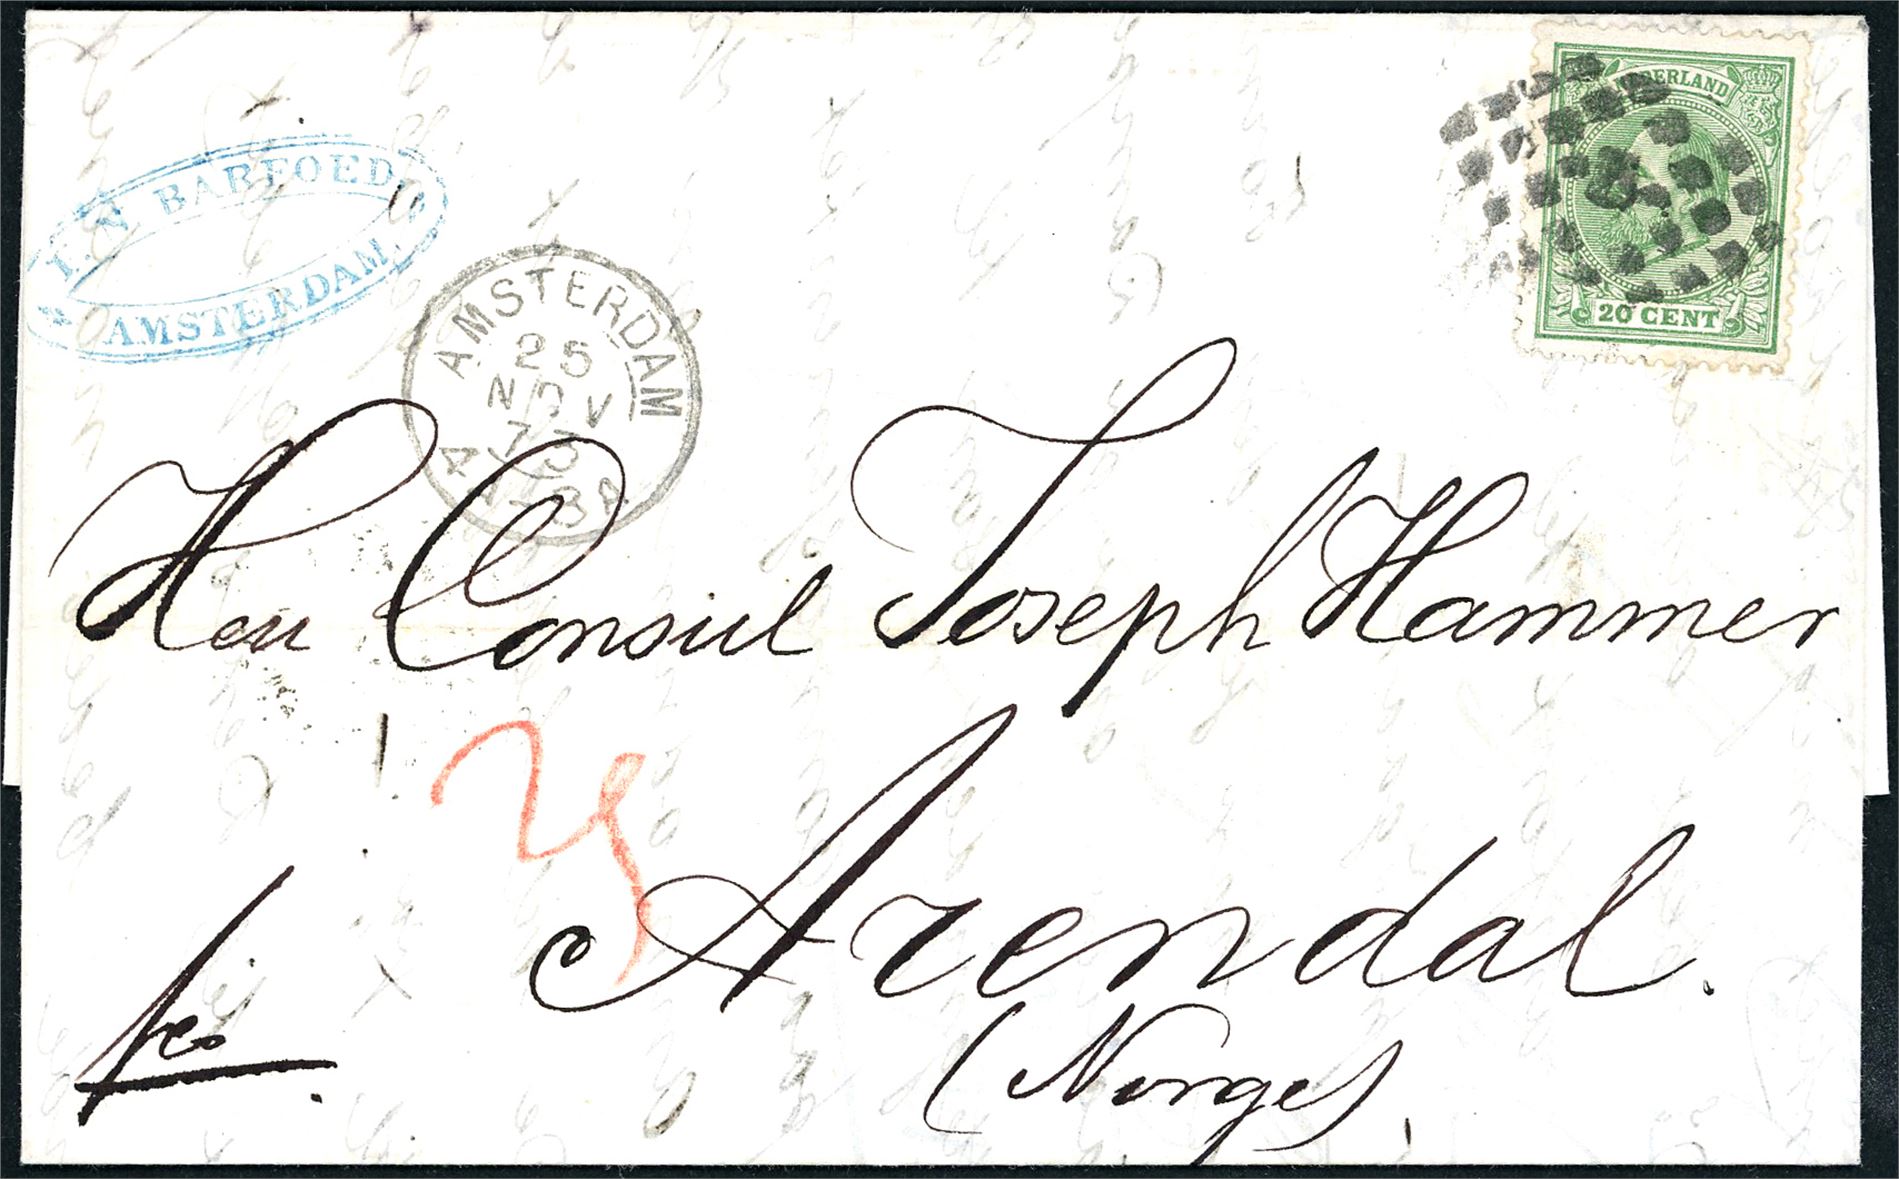 NEDERLAND
20 CENT
BARFOED
AMSTERDAM
AMSTERDAM
25
NOV
73
Herr Consul Joseph Hammer
Arendal.
(Norge).
fco